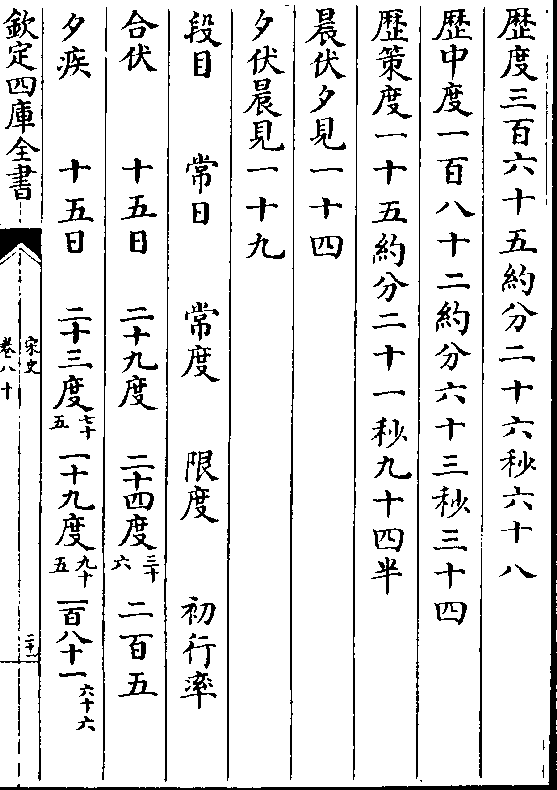 歴度三百六十五約分二十六秒六十八
歴中度一百八十二約分六十三秒三十四
歴策度一十五約分二十一秒九十四半
晨伏夕見一十四
夕伏晨見一十九
段目 常日 常度 限度 初行率
合伏 十五日 二十九度 二十四度三十六 二百五
夕疾 十五日 二十三度七十五 一十九度九十五 一百八十一六十六
欽定四庫全書
宋史
卷八十
二十一